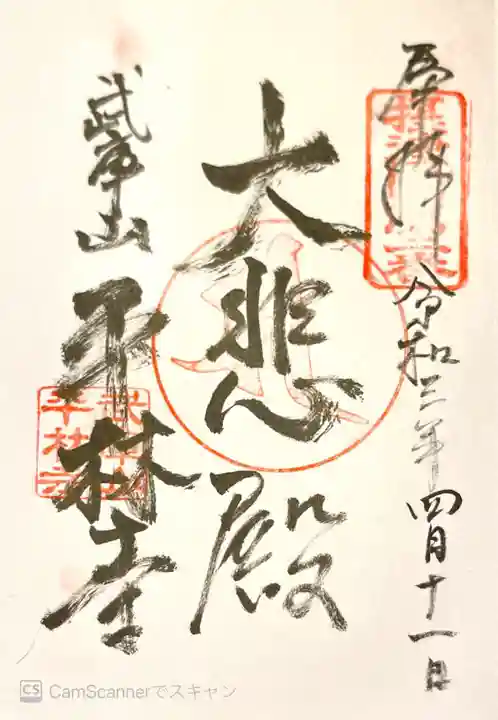 奉拝 令和三年四月十一日
大悲殿
武峯山 平林寺
CS CamScannerでスキャン